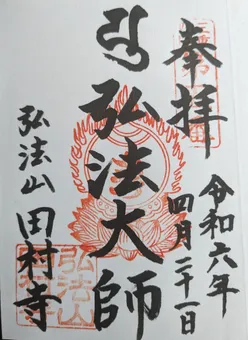 奉拝
令和六年
四月二十一日
弘法大師
弘法山
田村寺
弘法山